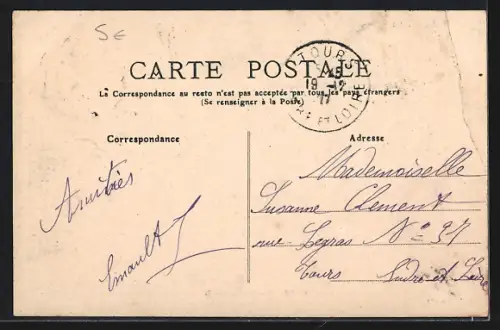 5E
TOURS
19-12
17
INDRE ET LOIRE
CARTE POSTALE
La Correspondance au recto n'est pas acceptée par tous les pays étrangers
(Se renseigner à la Poste)
Correspondance
Amitiés
Adresse
Mademoiselle
Susanne Clement
rue Legras N° 37
Tours Indre et Loire